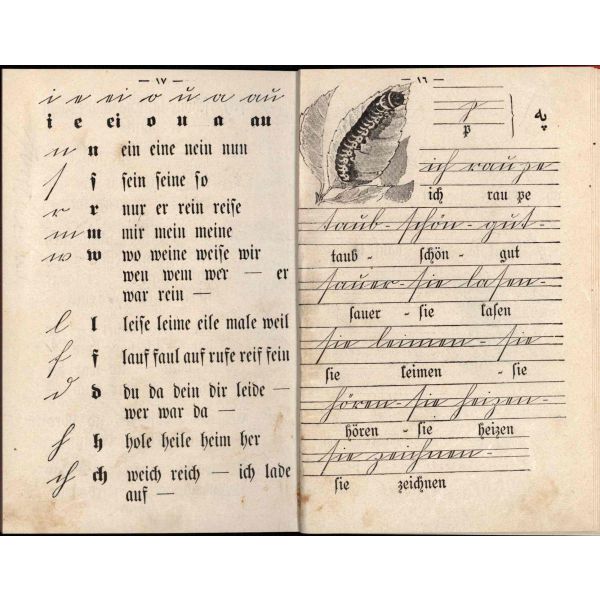 — ١٦ —
p په
p
ich raupe
ich rau pe
taub - schön - gut -
taub - schön - gut
sauer - sie lasen -
sauer - sie lasen
sie leimen - sie
sie leimen - sie
hören - sie heizen -
hören - sie heizen
sie zeichnen -
sie zeichnen
— ١٧ —
i e ei o u a au
i e ei o u a au
n n ein eine nein nun
s s sein seine so
r r nur er rein reise
m m mir mein meine
w w wo weine weise wir
wen wem wer — er
war rein —
l l leise leime eile male weil
f f lauf faul auf rufe reif fein
d d du da dein dir leide —
wer war da —
h h hole heile heim her
ch ch weich reich — ich lade
auf —